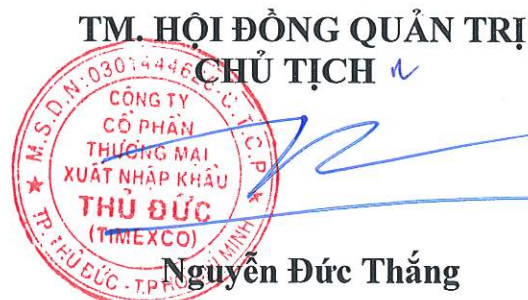 TM. HỘI ĐỒNG QUẢN TRỊ
CHỦ TỊCH
M.S.D.N: C.T.C.P
CÔNG TY
CỔ PHẦN
THƯƠNG MẠI
XUẤT NHẬP KHẨU
THỦ ĐỨC
(TIMEXCO)
TP. THỦ ĐỨC - T.P HỒ CHÍ MINH
Nguyễn Đức Thắng